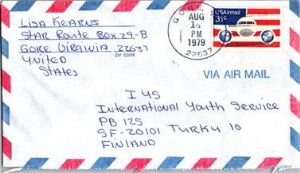 Lisa Kearns
Star Route Box 29-B
Gore Virginia 22637
United
States
ZIP CODE
AUG
14
PM
1979
22637
USAirmail
31c
VIA AIR MAIL
IYS
International Youth Service
PB 125
SF-20101 Turky 10
Finland